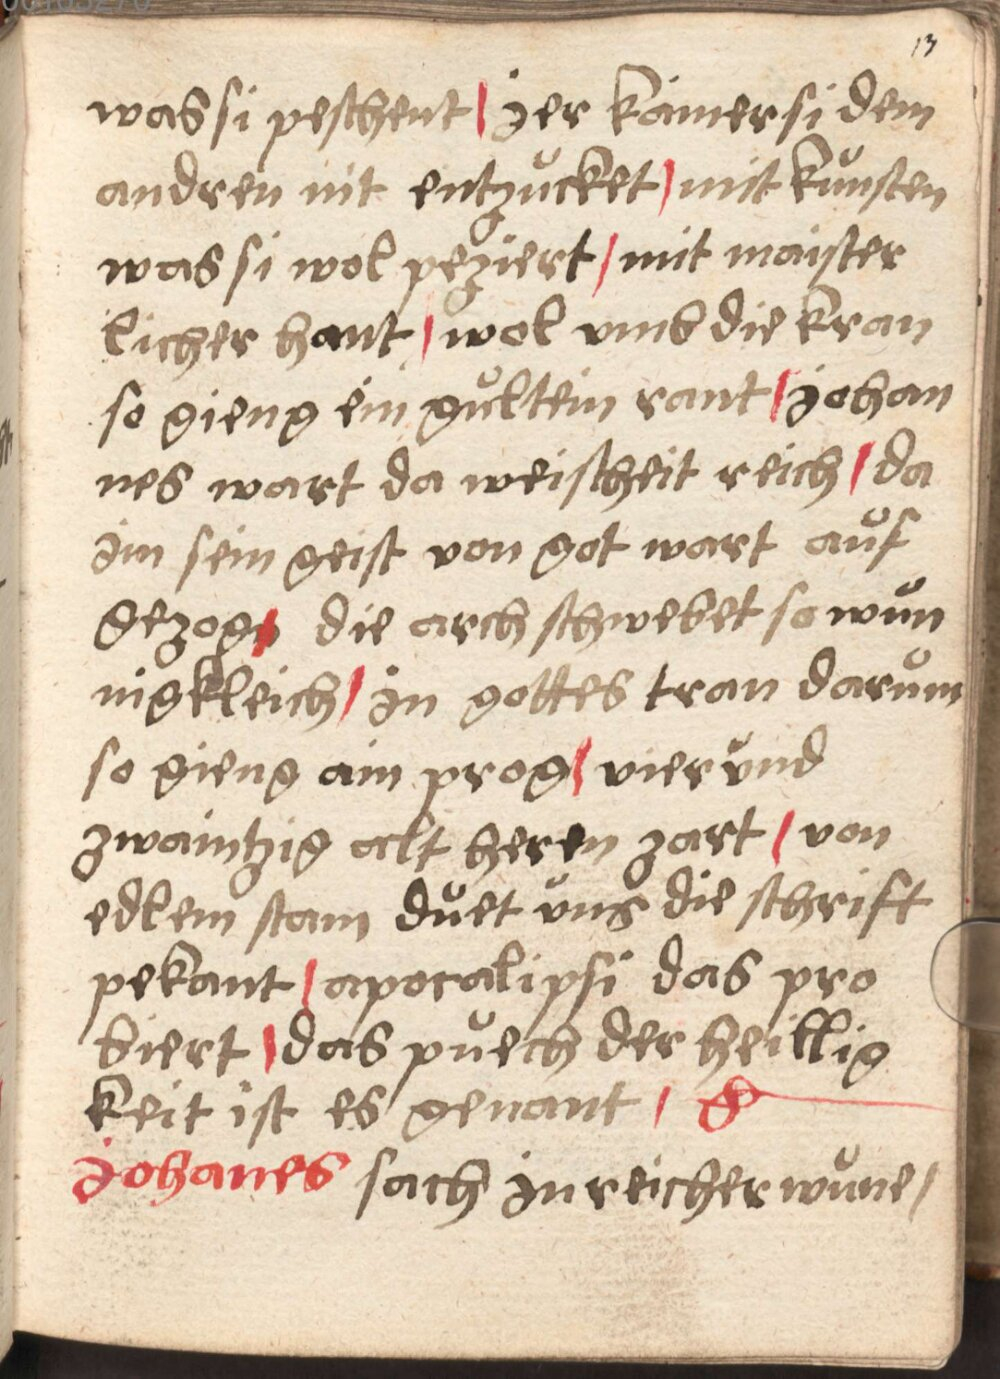 13
was si peschent / jer kamer si dem
andren nit entzucket / mit kunsten
was si wol peziert / mit maister
licher hant / wol vmb die kran
so gieng ein gultein rant / johan
nes wart da weistheit reich / da
im sein geist von got wart auf
gezogn die arch schwebet so wun
nigkleich / in gottes tran darum
so gieng ain prog / vier vnd
zwaintzig alt heren zart / von
edlem stam duet vns die schrift
pekant / apocalipsi das pro
biert / das puech der heillig
keit ist es genant /
johanes sach in reicher wune /